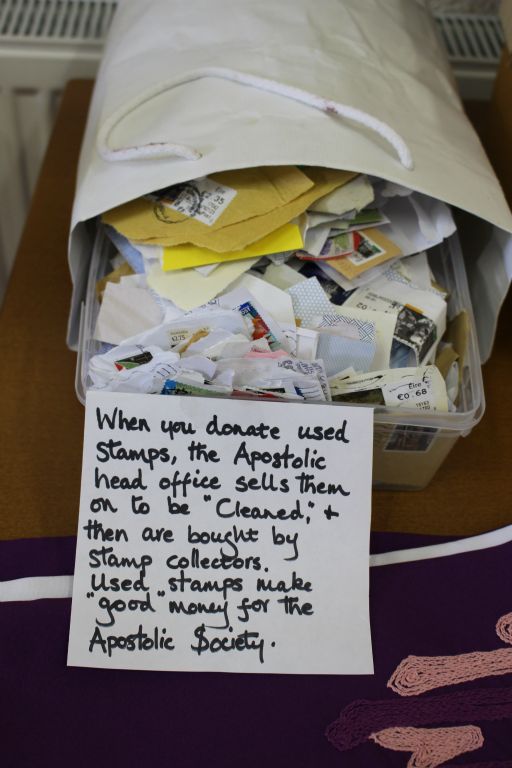 Australia
$2.75
Éire
€0.68
When you donate used
stamps, the Apostolic
head office sells them
on to be "Cleaned," +
then are bought by
stamp collectors.
Used stamps make
"good" money for the
Apostolic $ociety.